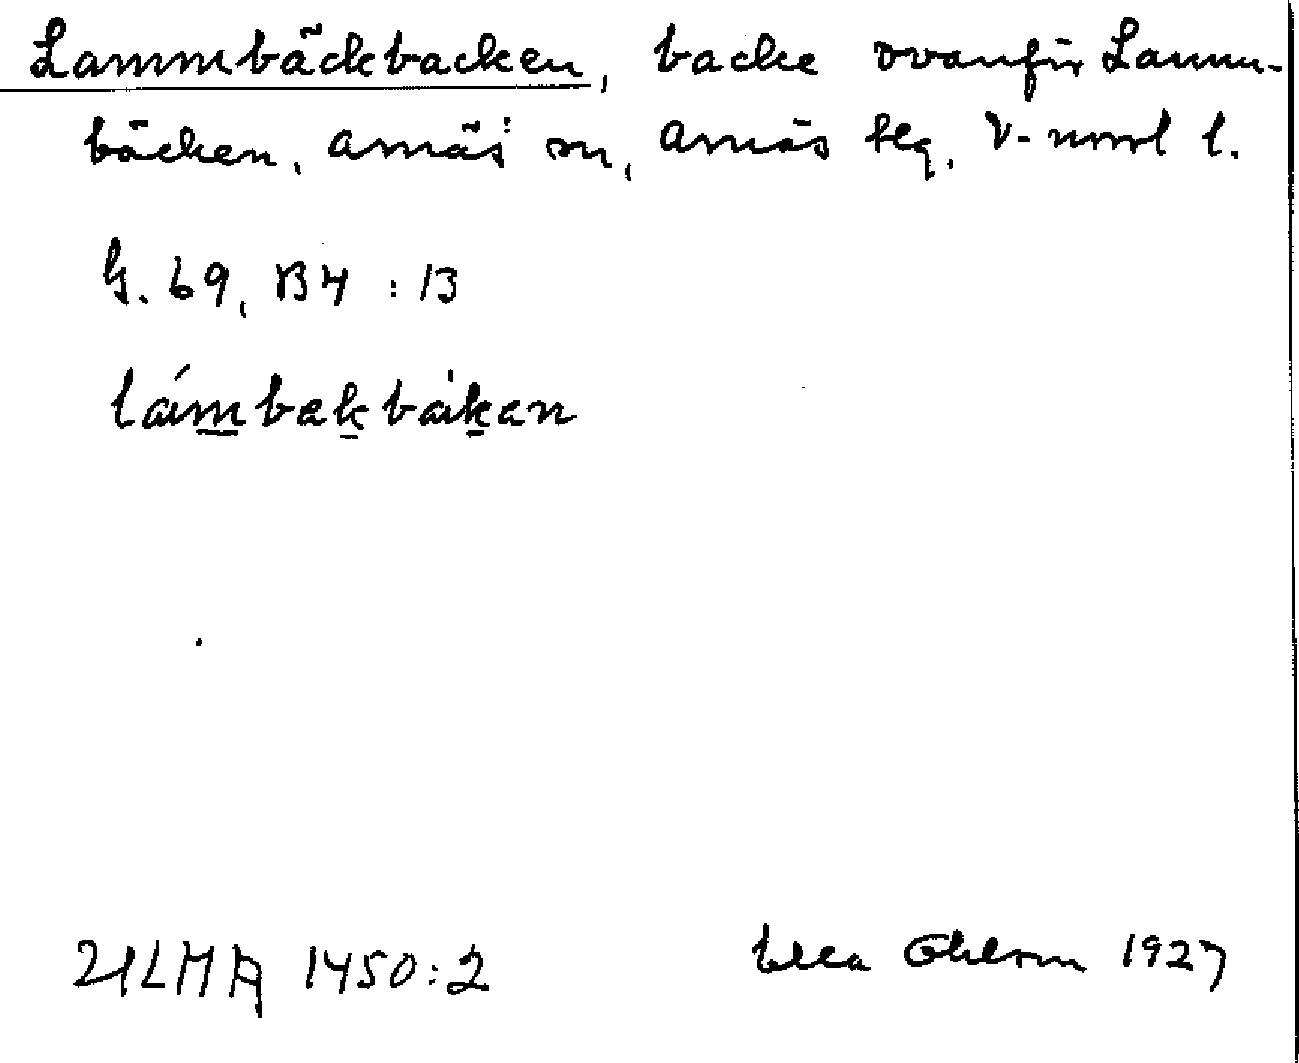 Lammbäckbacken, backe ovanför Lamm-
bäcken, Arnäs sn, Arnäs tlg, V-norrl l.
G. 69, B4 : 13
lámbakbàkan
ULMA 1450:2
Ella Ohlson 1927